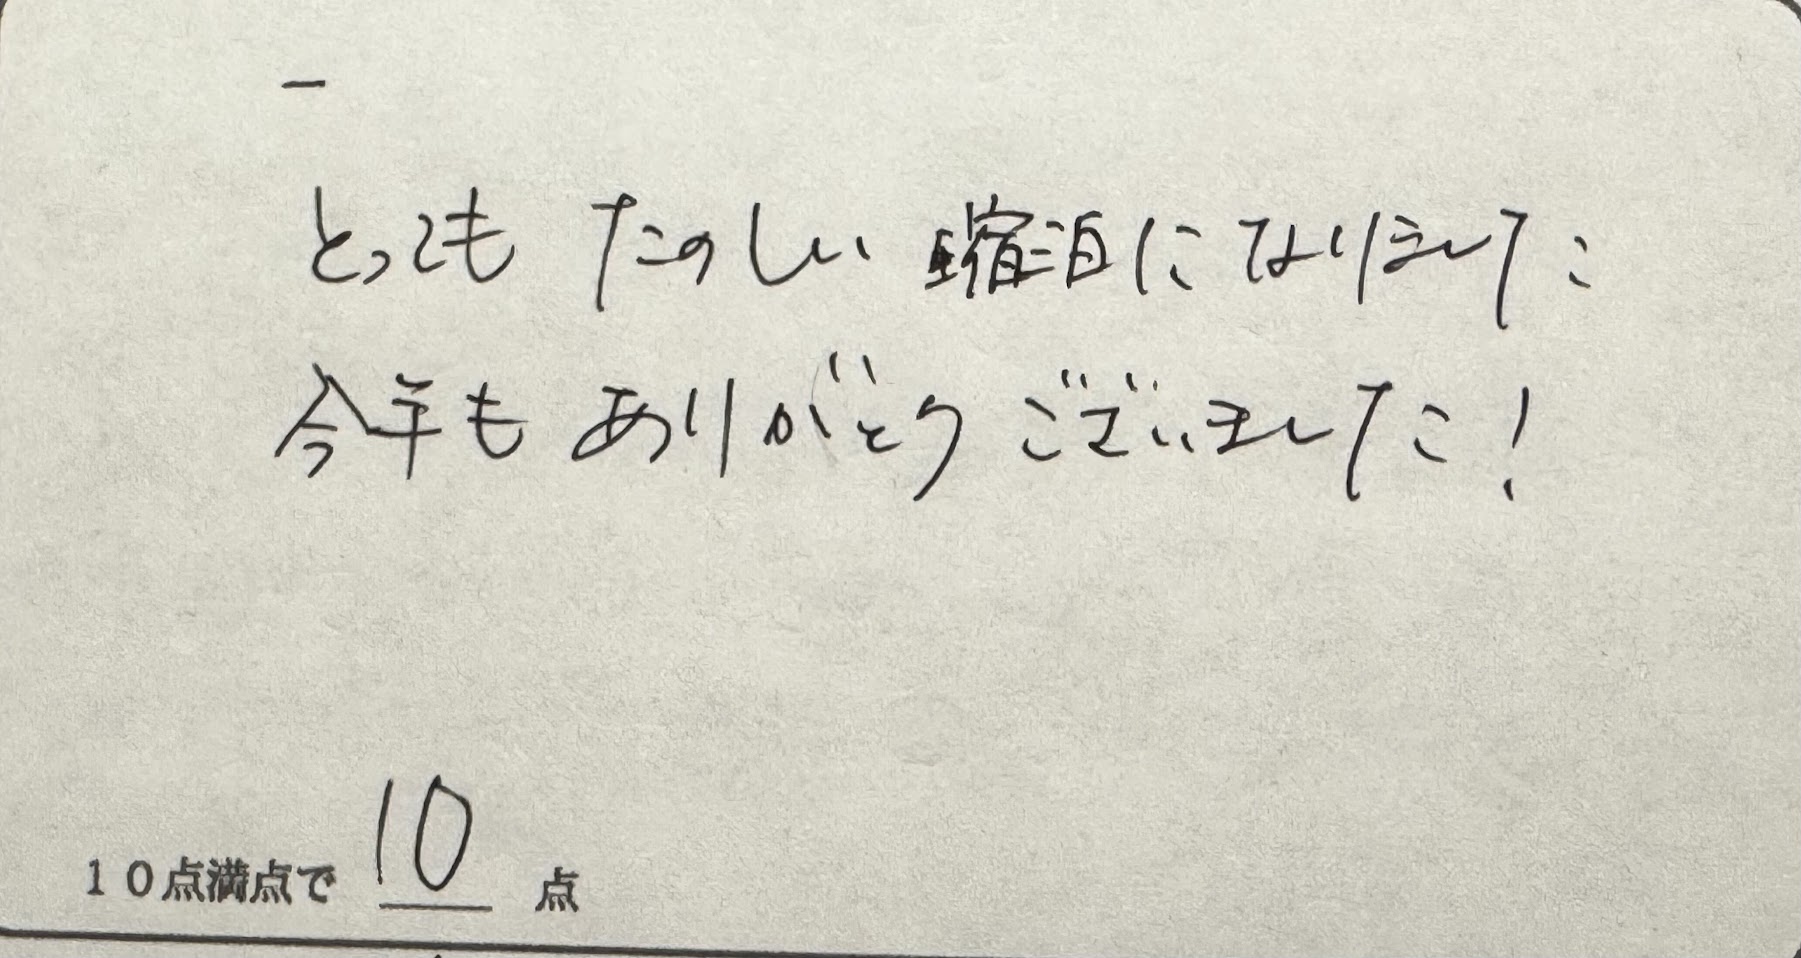 とってもたのしい宿泊になりました
今年もありがとうございました!
10点満点で 10 点